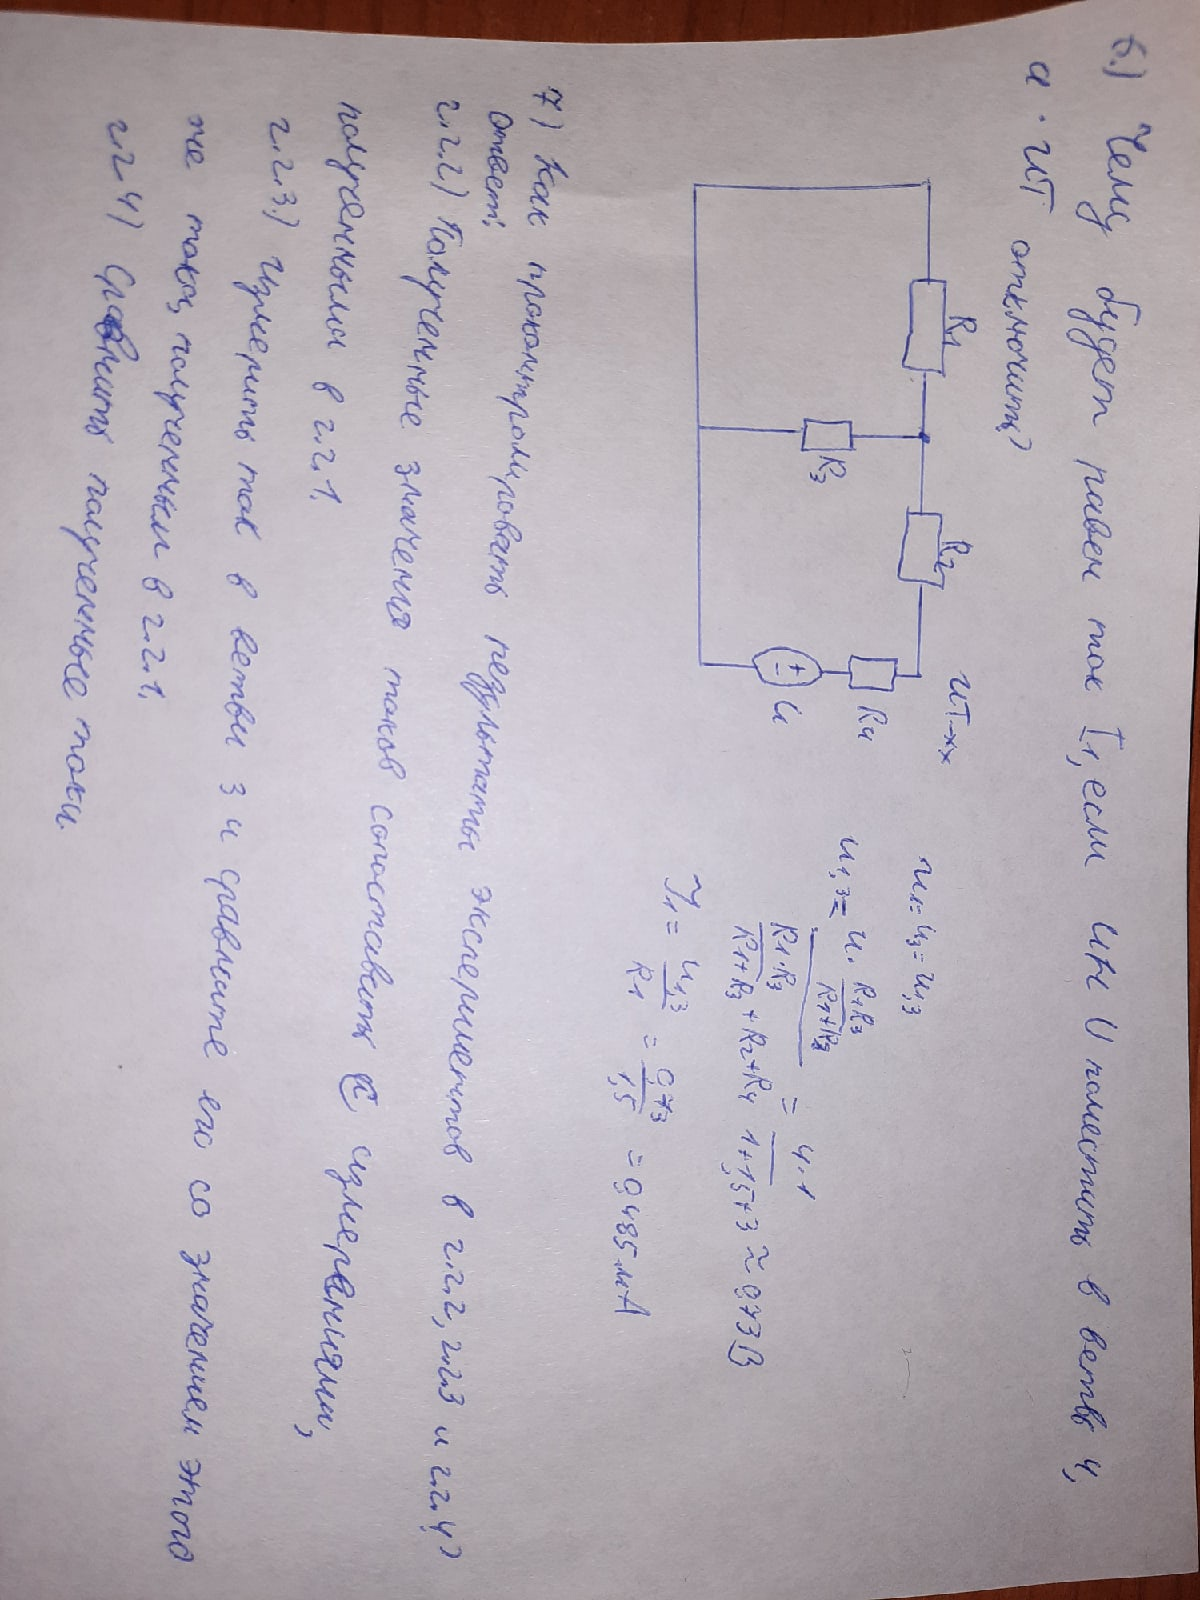 6.) Чему будет равен ток I1, если ИН U поместить в ветвь 4,
а ИТ отключить?
R1
R2
R3
R4
U
ИТ-хх
U1=U3=U1,3
U1,3= U· R1R3/R1+R3 / R1·R3/R1+R3 +R2+R4 = 4·1/1+1,5+3 ≈ 0,73В
I1= U1,3/R1 = 0,73/1,5 = 0,485мА
7) Как проконтролировать результаты экспериментов в 2.2.2, 2.2.3 и 2.2.4?
ответ:
2.2.2) Полученные значения токов сопоставить с измерениями,
полученными в 2.2.1.
2.2.3) Измерить ток в ветви 3 и сравните его со значением этого
же тока, полученным в 2.2.1.
2.2.4) Сравнить полученные токи.